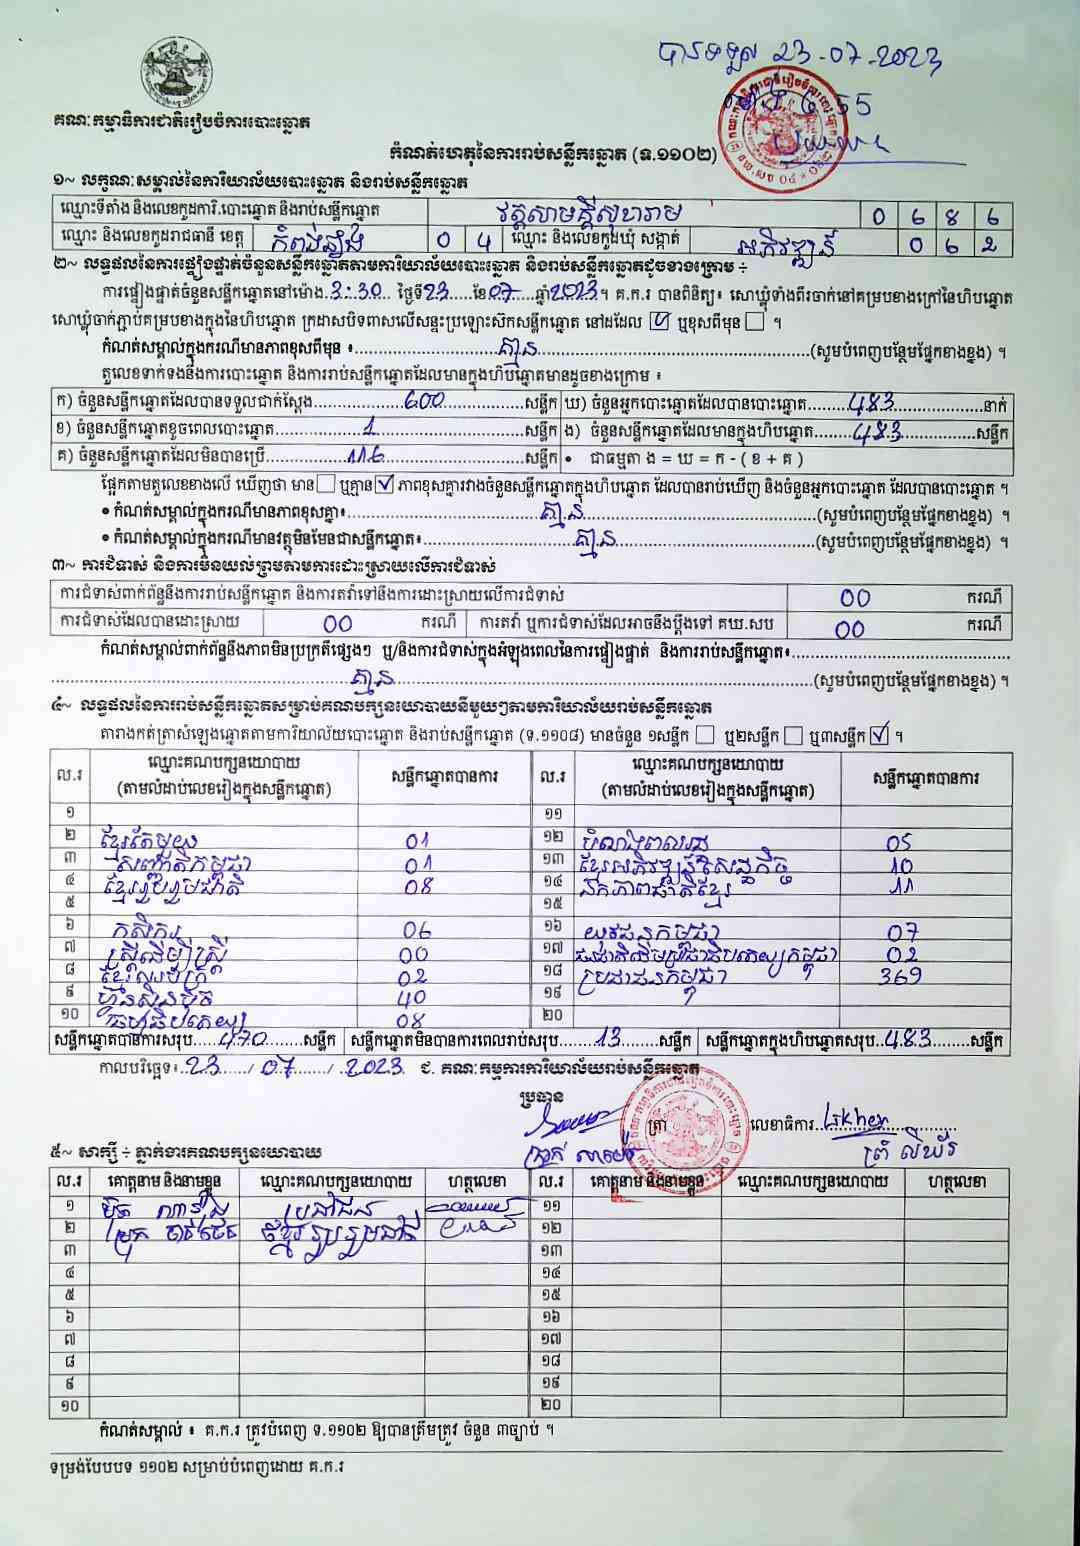 បានទទួល 23-07-2023
គណៈកម្មាធិការជាតិរៀបចំការបោះឆ្នោត
កំណត់ហេតុនៃការរាប់សន្លឹកឆ្នោត (ទ.១១០២)
១~ លក្ខណៈសម្គាល់នៃការិយាល័យបោះឆ្នោត និងរាប់សន្លឹកឆ្នោត
ឈ្មោះទីតាំង និងលេខកូដការិ.បោះឆ្នោត និងរាប់សន្លឹកឆ្នោត វត្តសាមគ្គីសុខារាម 0 6 8 6
ឈ្មោះ និងលេខកូដរាជធានី ខេត្ត កំពង់ឆ្នាំង 0 4 ឈ្មោះ និងលេខកូដឃុំ សង្កាត់ អភិវឌ្ឍន៍ 0 6 2
២~ លទ្ធផលនៃការផ្ទៀងផ្ទាត់ចំនួនសន្លឹកឆ្នោតតាមការិយាល័យបោះឆ្នោត និងរាប់សន្លឹកឆ្នោតដូចខាងក្រោម ÷
ការផ្ទៀងផ្ទាត់ចំនួនសន្លឹកឆ្នោតនៅម៉ោង 3:30 ថ្ងៃទី 23 ខែ 07 ឆ្នាំ 2023 ។ គ.ក.រ បានពិនិត្យ៖ សោឃ្លុំទាំងពីរចាក់នៅគម្របខាងក្រៅនៃហិបឆ្នោត
សោឃ្លុំចាក់ភ្ជាប់គម្របខាងក្នុងនៃហិបឆ្នោត ក្រដាសបិទពាសលើសន្ទះប្រឡោះស៊កសន្លឹកឆ្នោត នៅដដែល ☑ ឬខុសពីមុន ☐ ។
កំណត់សម្គាល់ក្នុងករណីមានភាពខុសពីមុន ៖ គ្មាន (សូមបំពេញបន្ថែមផ្នែកខាងខ្នង) ។
តួលេខទាក់ទងនឹងការបោះឆ្នោត និងការរាប់សន្លឹកឆ្នោតដែលមានក្នុងហិបឆ្នោតមានដូចខាងក្រោម ៖
ក) ចំនួនសន្លឹកឆ្នោតដែលបានទទួលជាក់ស្តែង 600 សន្លឹក ឃ) ចំនួនអ្នកបោះឆ្នោតដែលបានបោះឆ្នោត 483 នាក់
ខ) ចំនួនសន្លឹកឆ្នោតខូចពេលបោះឆ្នោត 1 សន្លឹក ង) ចំនួនសន្លឹកឆ្នោតដែលមានក្នុងហិបឆ្នោត 483 សន្លឹក
គ) ចំនួនសន្លឹកឆ្នោតដែលមិនបានប្រើ 116 សន្លឹក • ជាធម្មតា ង = ឃ = ក - ( ខ + គ )
ផ្អែកតាមតួលេខខាងលើ ឃើញថា មាន ☐ ឬគ្មាន ☑ ភាពខុសគ្នារវាងចំនួនសន្លឹកឆ្នោតក្នុងហិបឆ្នោត ដែលបានរាប់ឃើញ និងចំនួនអ្នកបោះឆ្នោត ដែលបានបោះឆ្នោត ។
• កំណត់សម្គាល់ក្នុងករណីមានភាពខុសគ្នា៖ គ្មាន (សូមបំពេញបន្ថែមផ្នែកខាងខ្នង) ។
• កំណត់សម្គាល់ក្នុងករណីមានវត្ថុមិនមែនជាសន្លឹកឆ្នោត៖ គ្មាន (សូមបំពេញបន្ថែមផ្នែកខាងខ្នង) ។
៣~ ការជំទាស់ និងការមិនយល់ព្រមតាមការដោះស្រាយលើការជំទាស់
ការជំទាស់ពាក់ព័ន្ធនឹងការរាប់សន្លឹកឆ្នោត និងការតវ៉ាទៅនឹងការដោះស្រាយលើការជំទាស់ 00 ករណី
ការជំទាស់ដែលបានដោះស្រាយ 00 ករណី ការតវ៉ា ឬការជំទាស់ដែលអាចនឹងប្តឹងទៅ គឃ.សប 00 ករណី
កំណត់សម្គាល់ពាក់ព័ន្ធនឹងភាពមិនប្រក្រតីផ្សេងៗ ឬ/និងការជំទាស់ក្នុងអំឡុងពេលនៃការផ្ទៀងផ្ទាត់ និងការរាប់សន្លឹកឆ្នោត៖
គ្មាន (សូមបំពេញបន្ថែមផ្នែកខាងខ្នង) ។
៤~ លទ្ធផលនៃការរាប់សន្លឹកឆ្នោតសម្រាប់គណបក្សនយោបាយនីមួយៗតាមការិយាល័យរាប់សន្លឹកឆ្នោត
តារាងកត់ត្រាសំឡេងឆ្នោតតាមការិយាល័យបោះឆ្នោត និងរាប់សន្លឹកឆ្នោត (ទ.១១០៨) មានចំនួន ១សន្លឹក ☐ ឬ២សន្លឹក ☐ ឬ៣សន្លឹក ☑ ។
ល.រ ឈ្មោះគណបក្សនយោបាយ (តាមលំដាប់លេខរៀងក្នុងសន្លឹកឆ្នោត) សន្លឹកឆ្នោតបានការ ល.រ ឈ្មោះគណបក្សនយោបាយ (តាមលំដាប់លេខរៀងក្នុងសន្លឹកឆ្នោត) សន្លឹកឆ្នោតបានការ
១ ១១
២ ខ្មែរតែមួយ 01 ១២ បំលាស់ពលរដ្ឋ 05
៣ សញ្ជាតិកម្ពុជា 01 ១៣ ខ្មែរអភិវឌ្ឍន៍សេដ្ឋកិច្ច 10
៤ ខ្មែររួបរួមជាតិ 08 ១៤ ឯកភាពជាតិខ្មែរ 11
៥ ១៥
៦ កសិករ 06 ១៦ យុវជនកម្ពុជា 07
៧ ស្ត្រីដើម្បីស្ត្រី 00 ១៧ ជនជាតិដើមប្រជាធិបតេយ្យកម្ពុជា 02
៨ ខ្មែរឈប់ក្រ 02 ១៨ ប្រជាជនកម្ពុជា 369
៩ ហ៊្វុនស៊ិនប៉ិច 40 ១៩
១០ ធម្មាធិបតេយ្យ 08 ២០
សន្លឹកឆ្នោតបានការសរុប 470 សន្លឹក សន្លឹកឆ្នោតមិនបានការពេលរាប់សរុប 13 សន្លឹក សន្លឹកឆ្នោតក្នុងហិបឆ្នោតសរុប 483 សន្លឹក
កាលបរិច្ឆេទ៖ 23 / 07 / 2023 ជ. គណៈកម្មការការិយាល័យរាប់សន្លឹកឆ្នោត
ប្រធាន
ត្រា លេខាធិការ
៥~ សាក្សី ÷ ភ្នាក់ងារគណបក្សនយោបាយ
ល.រ គោត្តនាម និងនាមខ្លួន ឈ្មោះគណបក្សនយោបាយ ហត្ថលេខា ល.រ គោត្តនាម និងនាមខ្លួន ឈ្មោះគណបក្សនយោបាយ ហត្ថលេខា
១ ប្រជាជន ១១
២ ខ្មែររួបរួមជាតិ ១២
៣ ១៣
៤ ១៤
៥ ១៥
៦ ១៦
៧ ១៧
៨ ១៨
៩ ១៩
១០ ២០
កំណត់សម្គាល់ ៖ គ.ក.រ ត្រូវបំពេញ ទ.១១០២ ឱ្យបានត្រឹមត្រូវ ចំនួន ៣ច្បាប់ ។
ទម្រង់បែបបទ ១១០២ សម្រាប់បំពេញដោយ គ.ក.រ